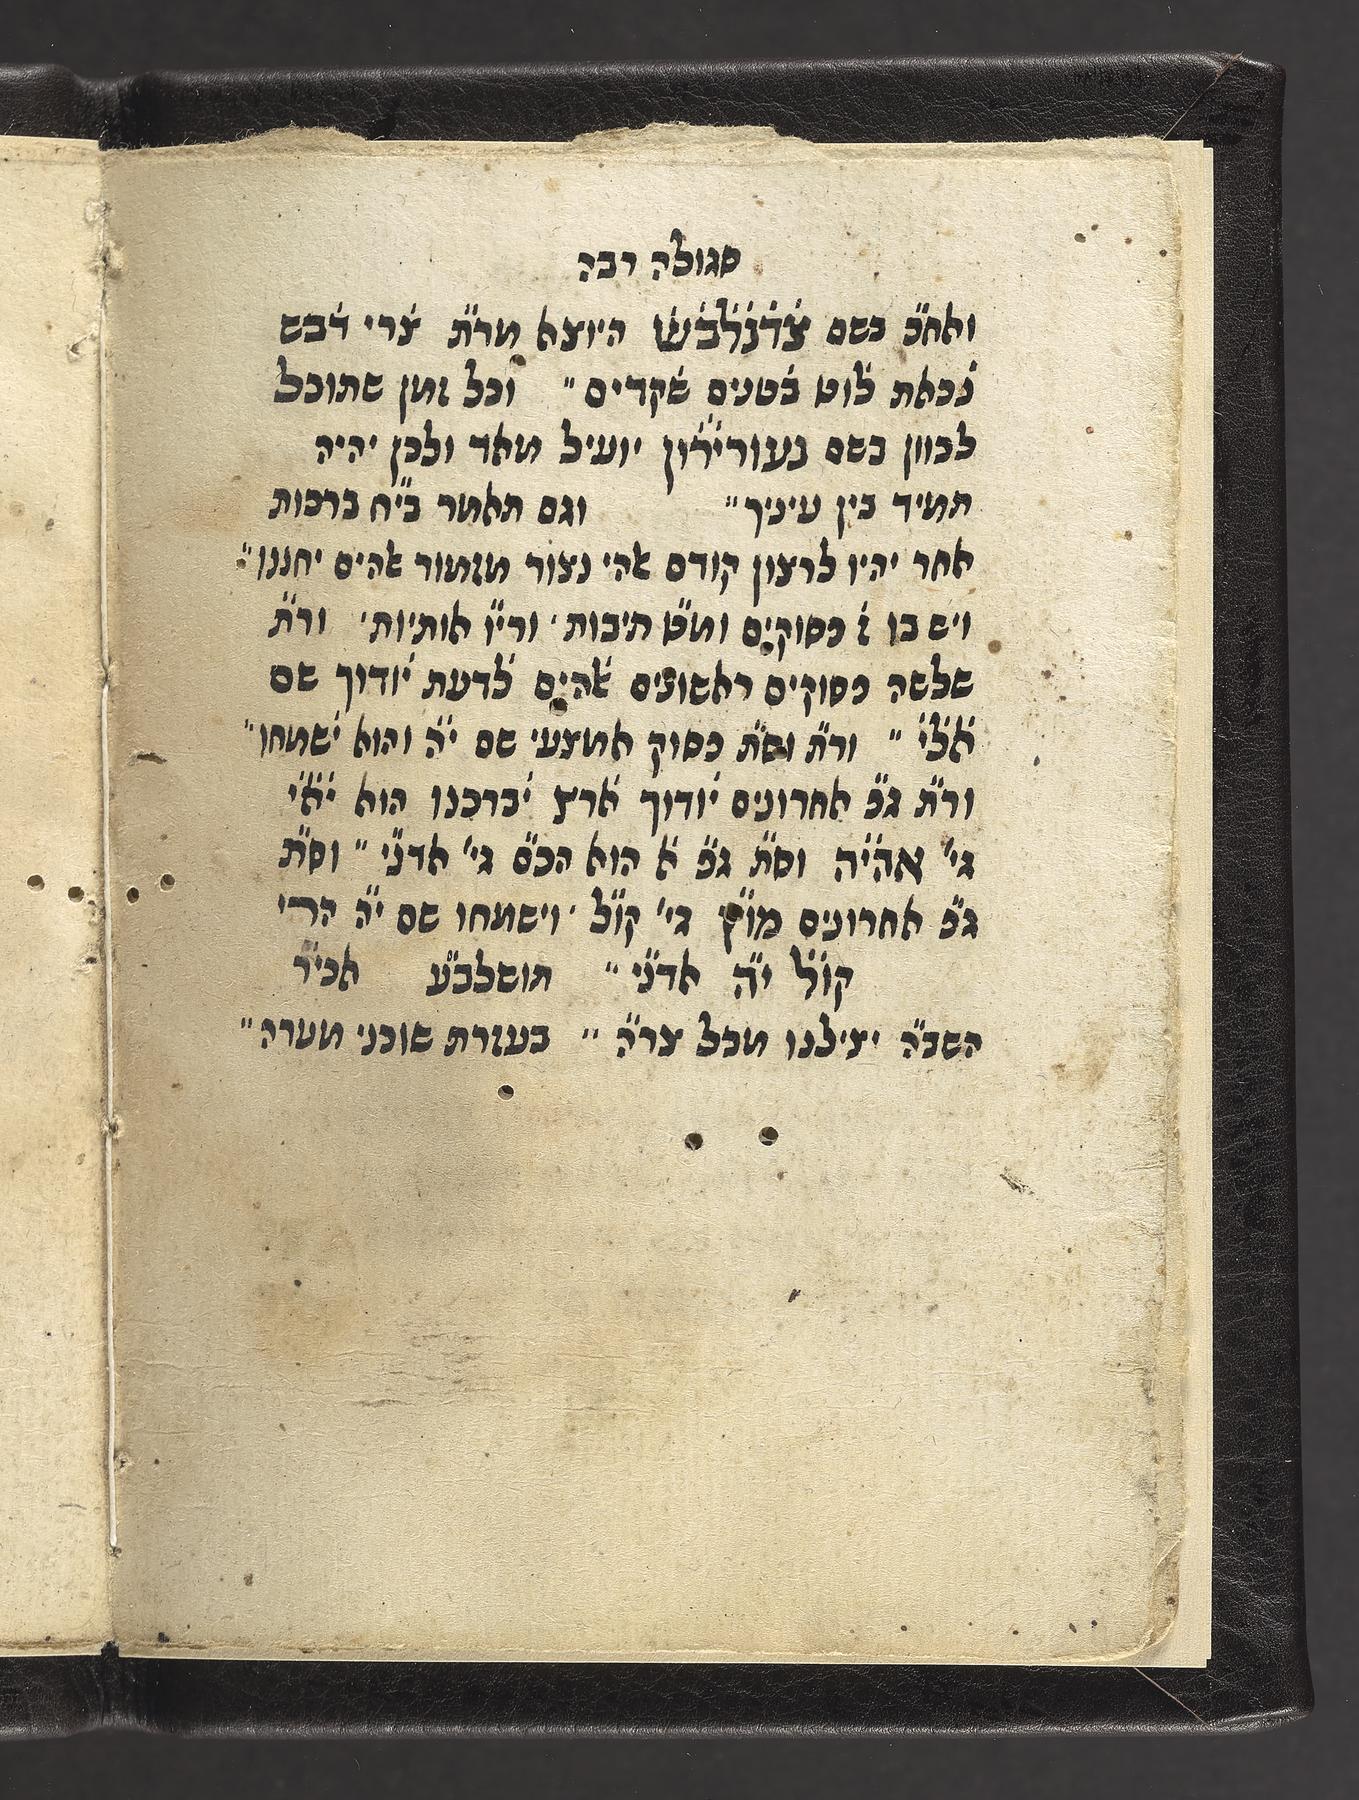 סגולה רבה
ואח״כ בשם צ׳ד׳נ׳ל׳ב׳ש׳ היוצא מר״ת צ׳רי ד׳בש
נ׳כאת ל׳וט ב׳טנים ש׳קדים״ וכל זמן שתוכל
לכוון בשם נעוריר׳ו׳ן יועיל מאד ולכן יהיה
תמיד בין עיניך״ וגם תאמר ב״יח ברכות
אחר יהיו לרצון קודם אהי נצור מזמור אהים יחננו״
ויש בו ז׳ פסוקים ומ״ט תיבות׳ ורי״ו אותיות׳ ור״ת
שלשה פסוקים ראשונים א׳הים ל׳דעת י׳ודוך שם
א׳ל׳י׳ ״ ור״ת וס״ת פסוק אמצעי שם י״ה והוא ישמחו״
ור״ת ג״פ אחרונים י׳ודוך א׳רץ י׳ברכנו הוא י׳א׳י׳
גי׳ אהי״ה וס״ת ג״פ א׳ הוא הכ״ם גי׳ אדנ״י ״ וס״ת
ג״פ אחרונים מו״ץ גי׳ קו״ל ׳ וישמחו שם י״ה הרי
קו״ל י״ה אדנ״י ״ תושלב״ע אכי״ר
השב״ה יצילנו מכל צר״ה ״ בעזרת שוכני מערה״